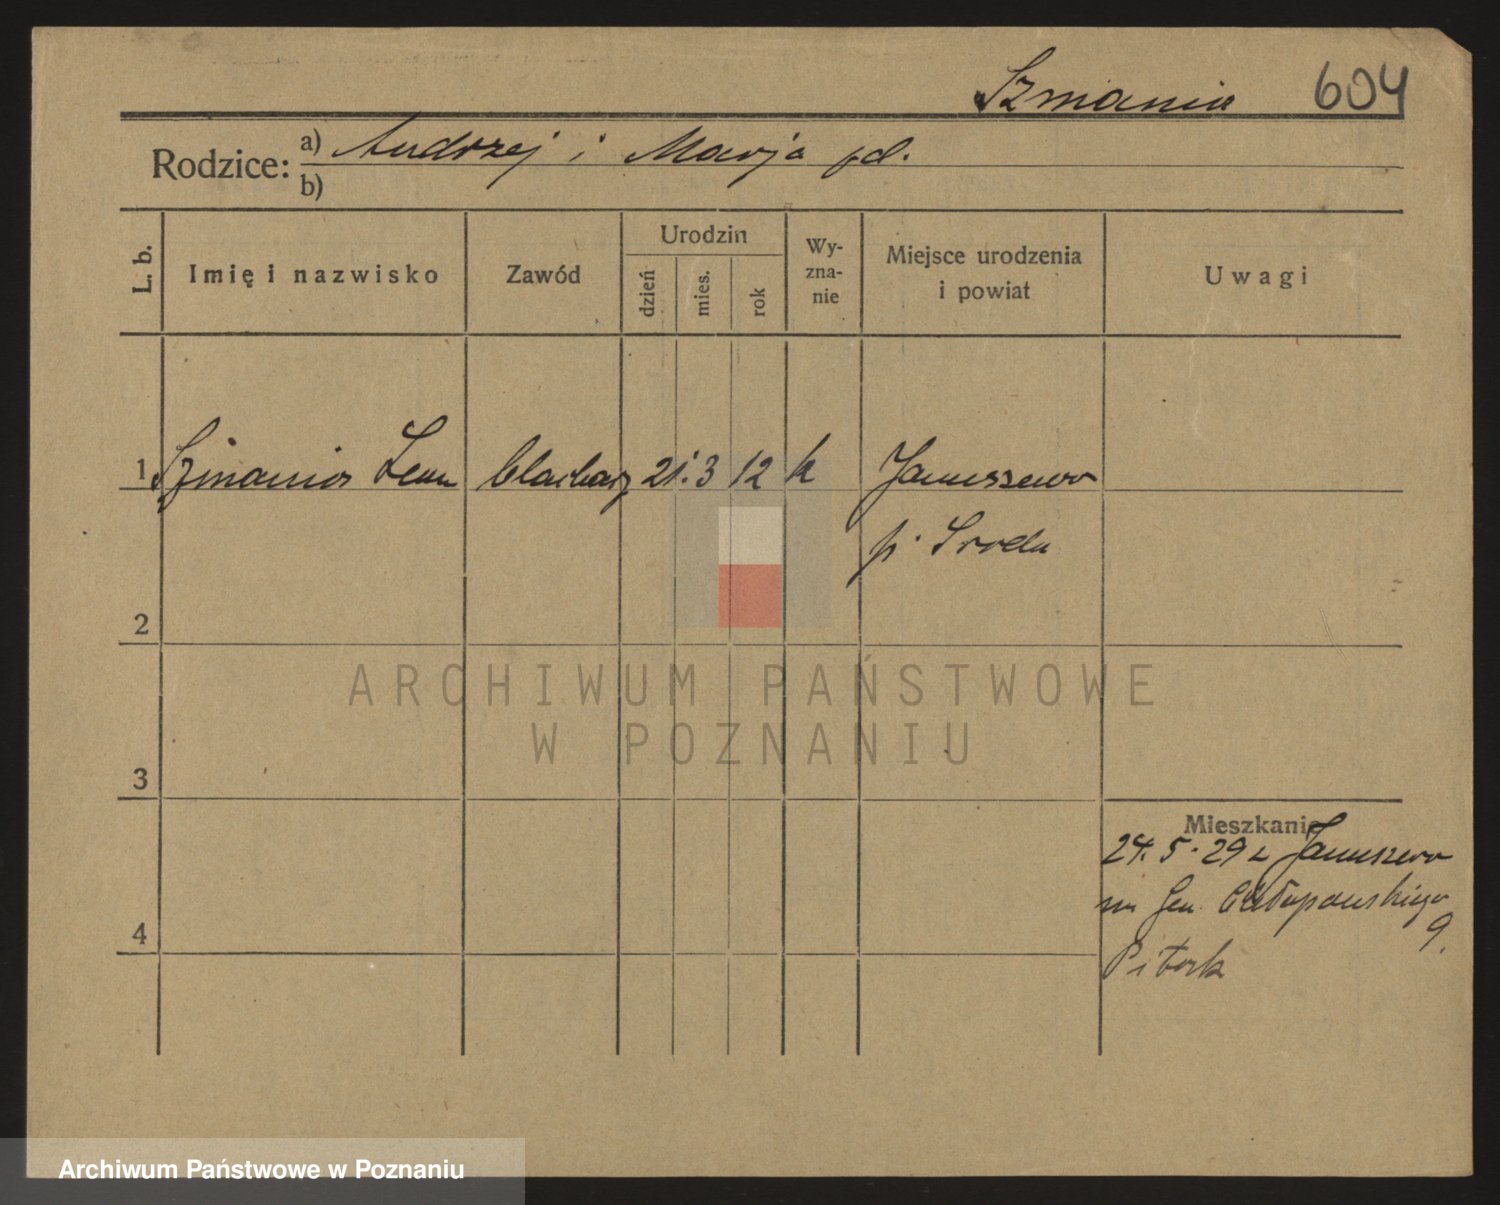 Szmania 604
Rodzice: a) Andrzej i Marja pd.
b)
L. b.
Imię i nazwisko
Zawód
Urodzin
dzień
mies.
rok
Wy-
zna-
nie
Miejsce urodzenia
i powiat
Uwagi
1 Szmania Leon blacharz 21. 3 12 k Januszewo
p. Sroda
2
3
4
Mieszkanie
24. 5. 29 z Januszewo
Gen. Chłapowskiego
9.
ARCHIWUM PAŃSTWOWE
W POZNANIU
Archiwum Państwowe w Poznaniu